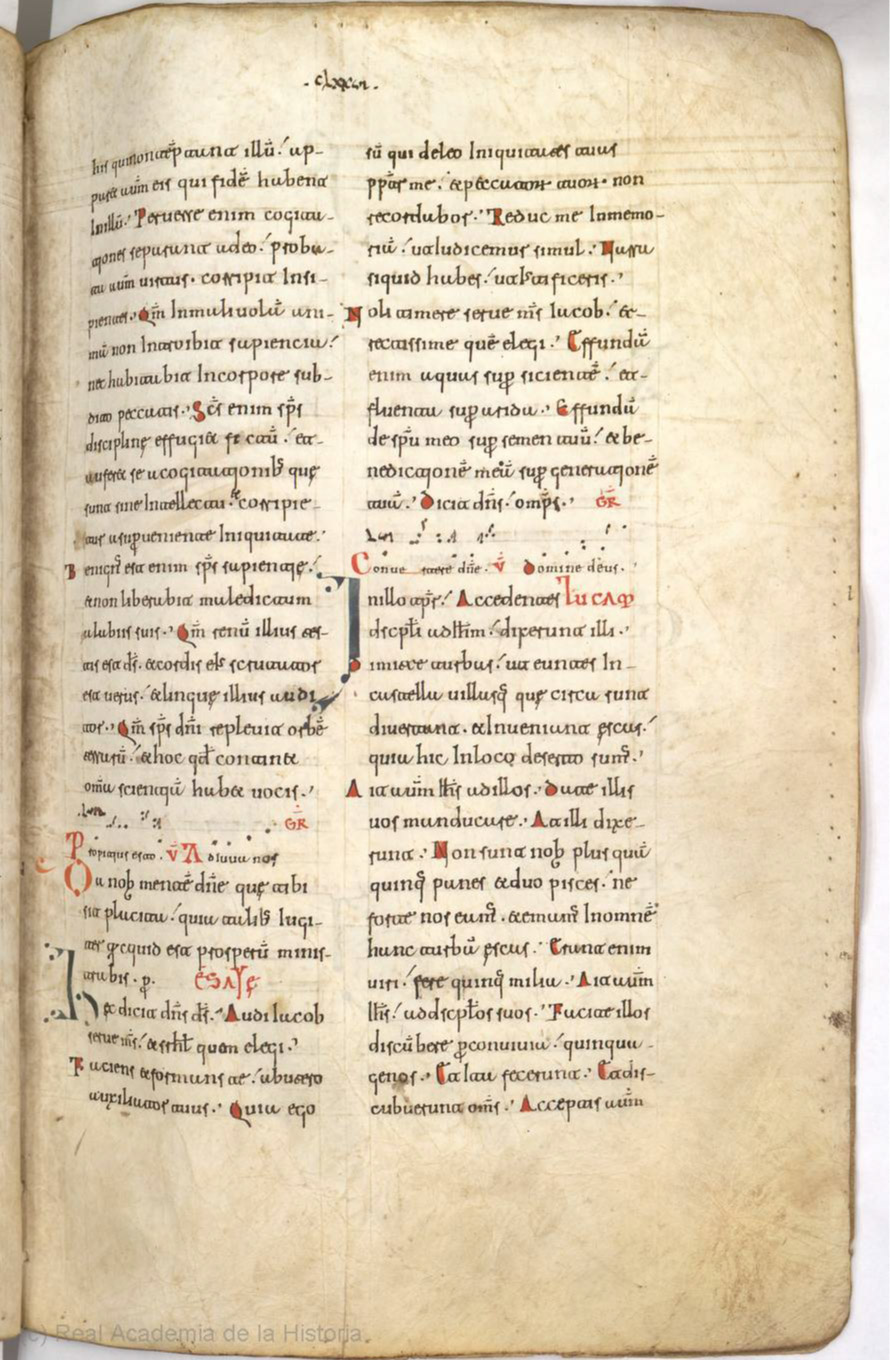 ·clxxvi·
his qui non tēptant illū. ap-
paret autm̄ eis qui fidē habent
Inillū. Peruerse enim cogitati-
ones separant adeo. proba-
ta autm̄ uirtus. corripit Insi-
pientes. Qm̄ Inmaliuola ani-
ma non Introibit sapientia.
nec habitabit Incorpore sub-
dito peccatis. Scs̄ enim sps̄
disciplinę effugiet fictū. et
auferet se acogitationibs quę
sunt sine Intellectu. et corripie-
tur asuperueniente Iniquitate.
Benign est enim sps̄ sapientię.
et non liberabit maledictum
alabiis suis. Qm̄ renū illius tes-
tis est ds̄. et cordis eis scrutator
est uerus. et linguę illius audi
tor. Qm̄ sps̄ dn̄i repleuit orbē
terrarū. et hoc qd̄ continet
omīa scientiā habet uocis.
GR̄
Propitius esto. V̄ Adiuua nos
Da nob mentē dn̄e quę tibi
sit placita. quia talibs Iugi-
ter quicquid est prosperū minis-
trabis. p. ESAIE
Hec dicit dn̄s ds̄. Audi Iacob
serue ms̄. et isrhl̄ quem elegi.
Faciens et formans te. ab utero
auxiliator tuus. Quia ego
sū qui deleo Iniquitates tuas
ppt̄er me. et peccatorum tuorum non
recordabor. Reduc me Inmemo-
riā. ut Iudicemur simul. Narra
siquid habes. ut Iustificeris.
Noli timere serue ms̄ Iacob. et
rectissime quē elegi. Effundā
enim aquas sup sicientē. et
fluenta sup arida. Effundā
de spū meo sup semen tuū. et be-
nedictionē meā sup generationē
tuā. Dicit dn̄s. omps̄. GR̄
Conuertere dn̄e. V̄ Domine deus.
Inillo tpr̄e. Accedentes LUCAM
dscpli adIhm̄. dixerunt illi.
Dimitte turbas. ut euntes In
castella uillasq quę circa sunt
diuertant. et Inueniant escas.
quia hic Inloco deserto sum̄.
Ait autm̄ Ihs̄ adillos. Date illis
uos manducare. At illi dixe-
runt. Non sunt nob plus quā
quinq panes et duo pisces. ne
forte nos eam̄. et emam̄ Inomnē
hanc turbā escas. Erant enim
uiri. fere quinq milia. Ait autm̄
Ihs̄. addscpl̄os suos. Facite illos
discūbere pconuiuia. quinqua-
genos. Et Ita fecerunt. Et dis-
cubuerunt oms̄. Acceptis autm̄